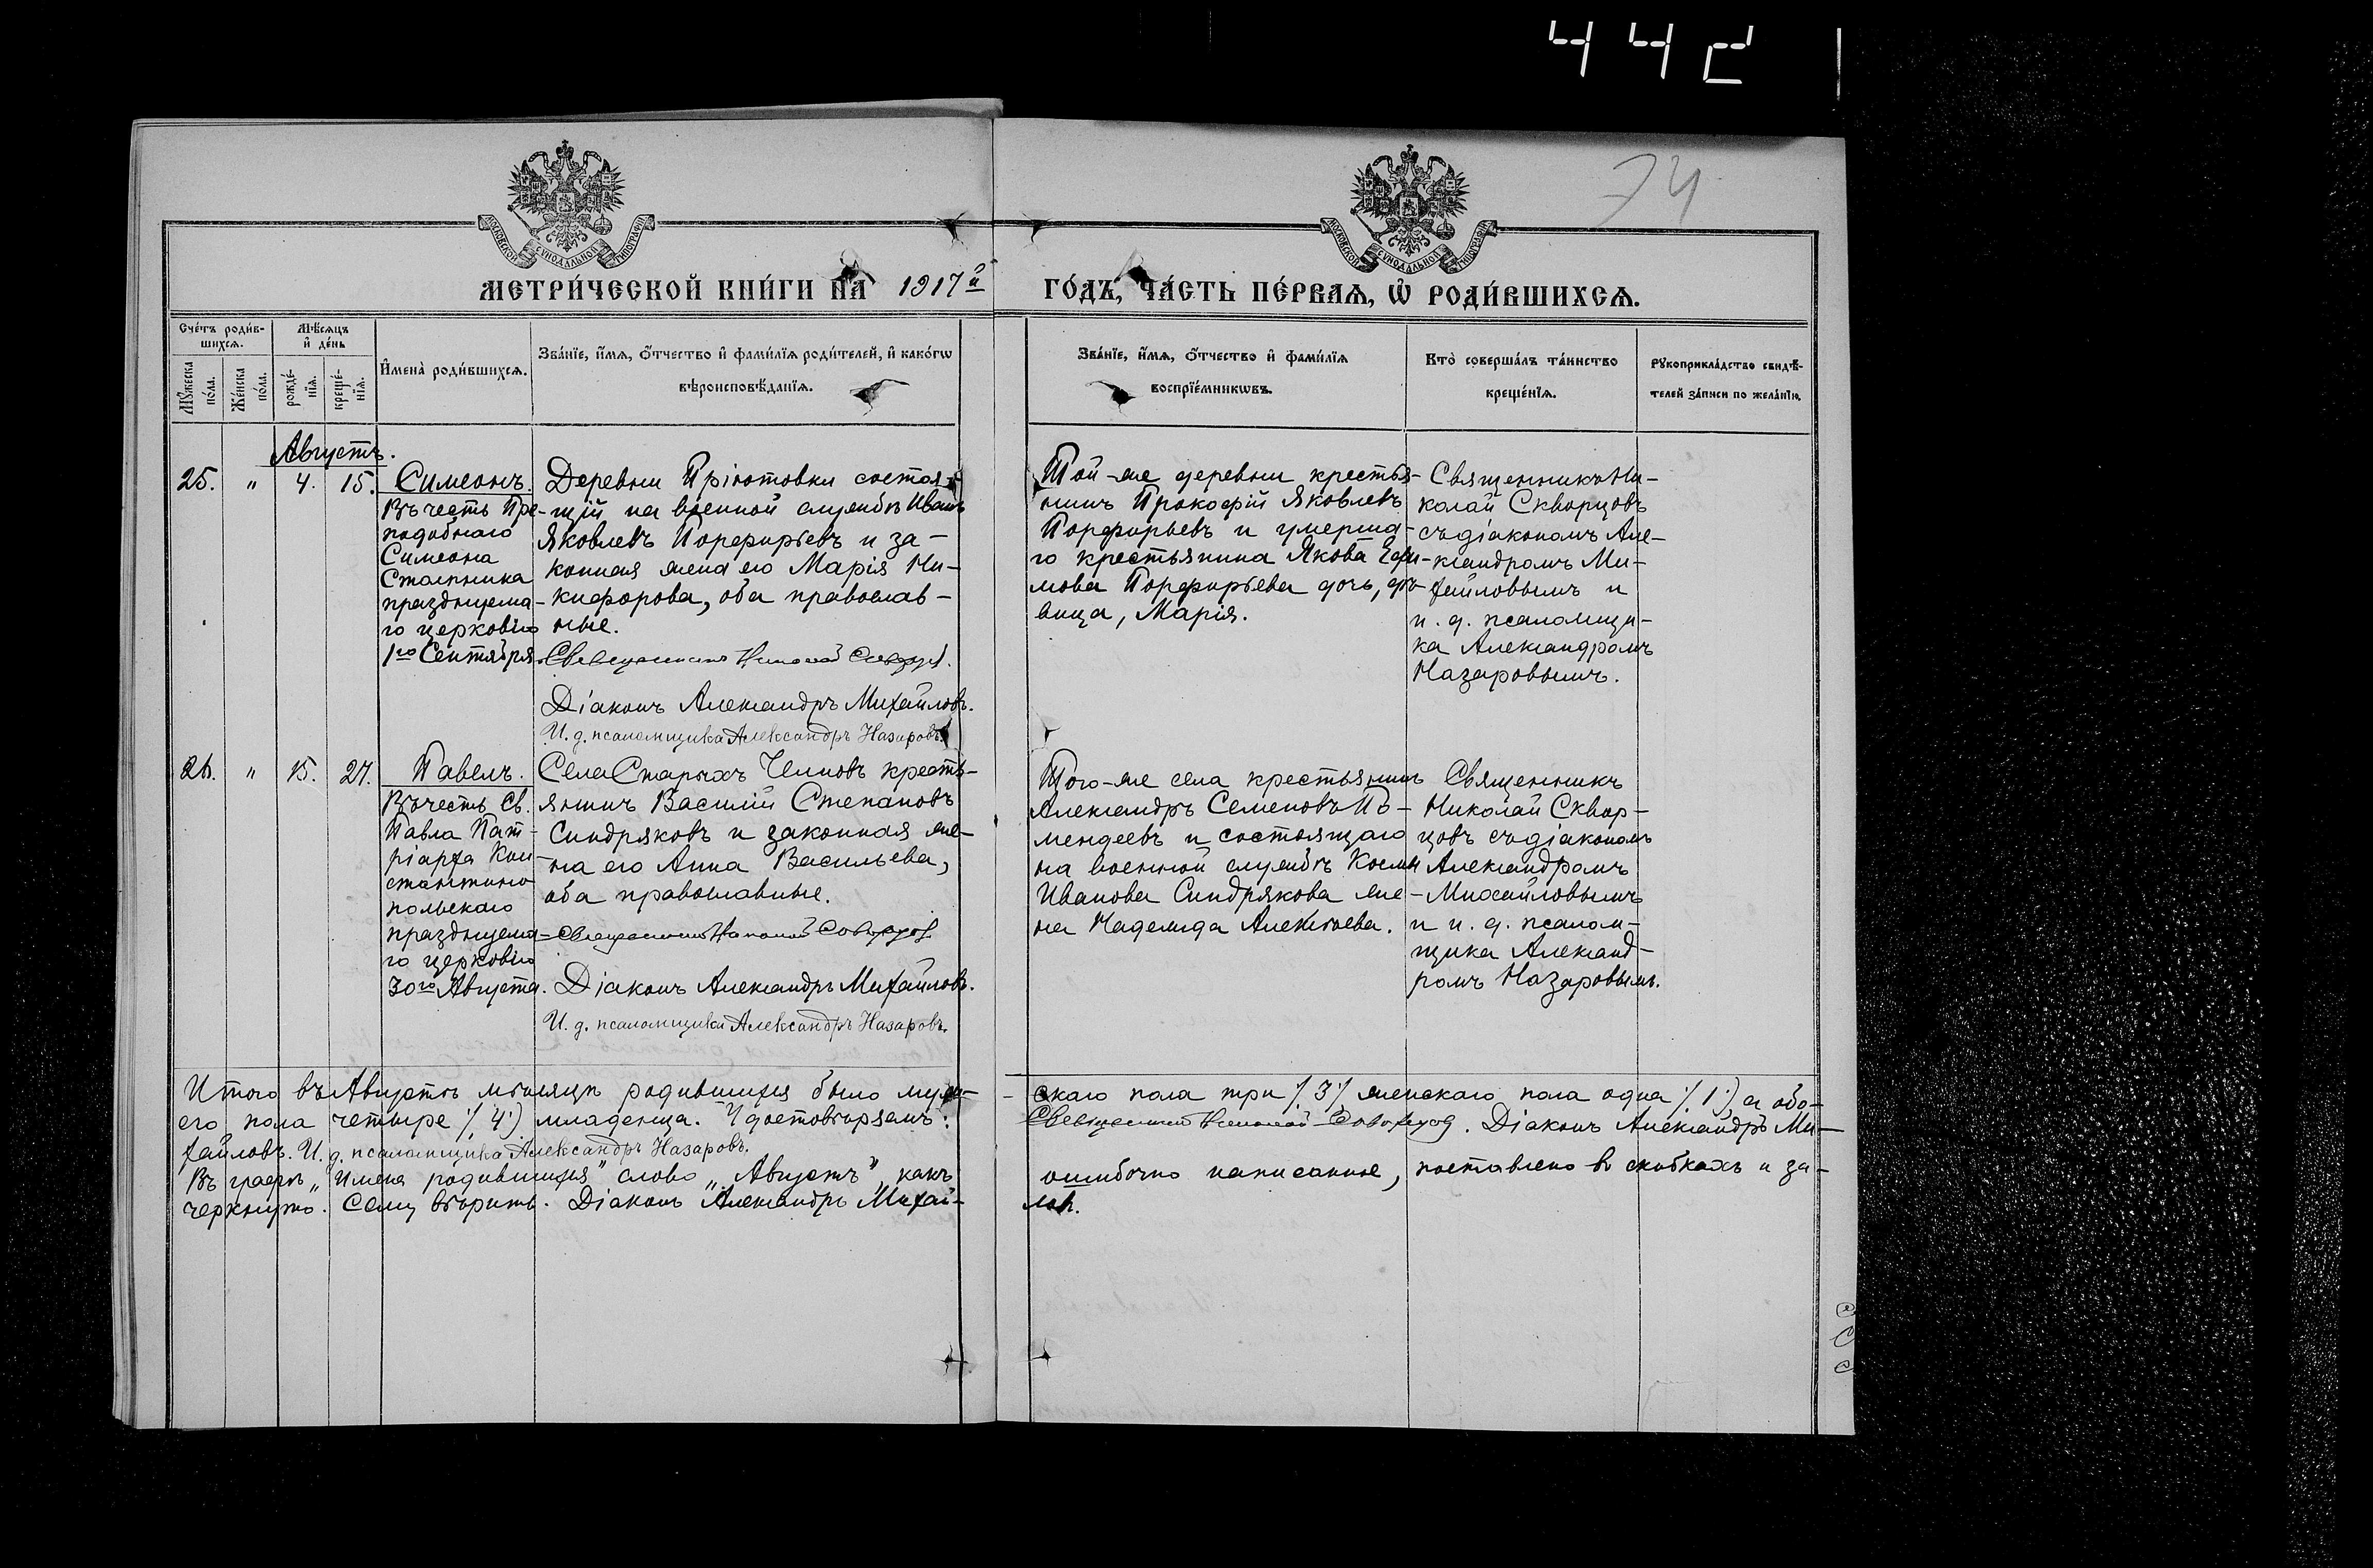 442
74
МОСКОВСКОЙ СѴНОДАЛЬНОЙ ТИПОГРАФІИ
МОСКОВСКОЙ СѴНОДАЛЬНОЙ ТИПОГРАФІИ
МЕТРИ́ЧЕСКОЙ КНИ́ГИ НА 1917й
ГО́ДЪ, ЧА́СТЬ ПЕ́РВАѦ, Ѿ РОДИ́ВШИХСѦ.
Сче́тъ роди́в-
шихсѧ.
Мѣ́сѧцъ
и҆ де́нь
Мꙋ́жеска
по́ла.
Же́нска
по́ла.
рожде́-
нїѧ.
креще́-
нїѧ.
И҆мена̀ роди́вшихсѧ.
Зва́нїе, и҆́мѧ, ѻ҆́тчество и҆ фами́лїѧ роди́телей, и҆ како́гѡ
вѣроисповѣ́данїѧ.
Зва́нїе, и҆́мѧ, ѻ҆́тчество и҆ фами́лїѧ
воспрїе́мникѡвъ.
Кто̀ соверша́лъ та́инство
креще́нїѧ.
Рꙋкоприкла́дство свидѣ́-
телей за́писи по жела́нїю.
Августъ.
25. " 4. 15.
Симеонъ.
Въ честь Пре-
подобнаго
Симеона
Столпника
празднуема-
го церковію
1го Сентября
Деревни Пріютовки состоя-
щій на военной службѣ Иванъ
Яковлевъ Порфирьевъ и за-
конная жена его Марія Ни-
кифорова, оба православ-
ные.
Священникъ Николай Скворцовъ.
Діаконъ Александръ Михайловъ.
И. д. псаломщика Александръ Назаровъ.
Той-же деревни крестья-
нинъ Прокофій Яковлевъ
Порфирьевъ и умерша-
го крестьянина Якова Ефи-
мова Порфирьева дочь, дѣ-
вица, Марія.
Священникъ Ни-
колай Скворцовъ
съ діакономъ Але-
ксандромъ Ми-
хайловымъ и
и. д. псаломщи-
ка Александромъ
Назаровымъ.
26. " 15. 27.
Павелъ.
Въ честь Св.
Павла Пат-
ріарха Кон-
стантино-
польскаго
празднуема-
го церковію
30го Августа.
Села Старыхъ Челновъ кресть-
янинъ Василій Степановъ
Синдряковъ и законная же-
на его Анна Васильева,
оба православные.
Священникъ Николай Скворцовъ
Діаконъ Александръ Михайловъ.
И. д. псаломщика Александръ Назаровъ.
Того-же села крестьянинъ
Александръ Семеновъ
и состоящаго
на военной службѣ Косьмы
Иванова Синдрякова же-
на Надежда Алексѣева.
Священникъ
Николай Сквор-
цовъ съ діакономъ
Александромъ
Михайловымъ
и и. д. псалом-
щика Александ-
ромъ Назаровымъ.
Итого въ Августѣ мѣсяцѣ родившихся было муже-
скаго пола три /3/ женскаго пола одна /1/ а обо-
его пола четыре /4/ младенца. Удостовѣряемъ:
Священникъ Николай Скворцовъ. Діаконъ Александръ Ми-
хайловъ. И. д. псаломщика Александръ Назаровъ.
Въ графѣ „Имена родившихся" слово „Августъ", какъ
ошибочно написанное, поставлено въ скобкахъ и за-
черкнуто. Сему вѣрить. Діаконъ Александръ Михай-
ловъ.